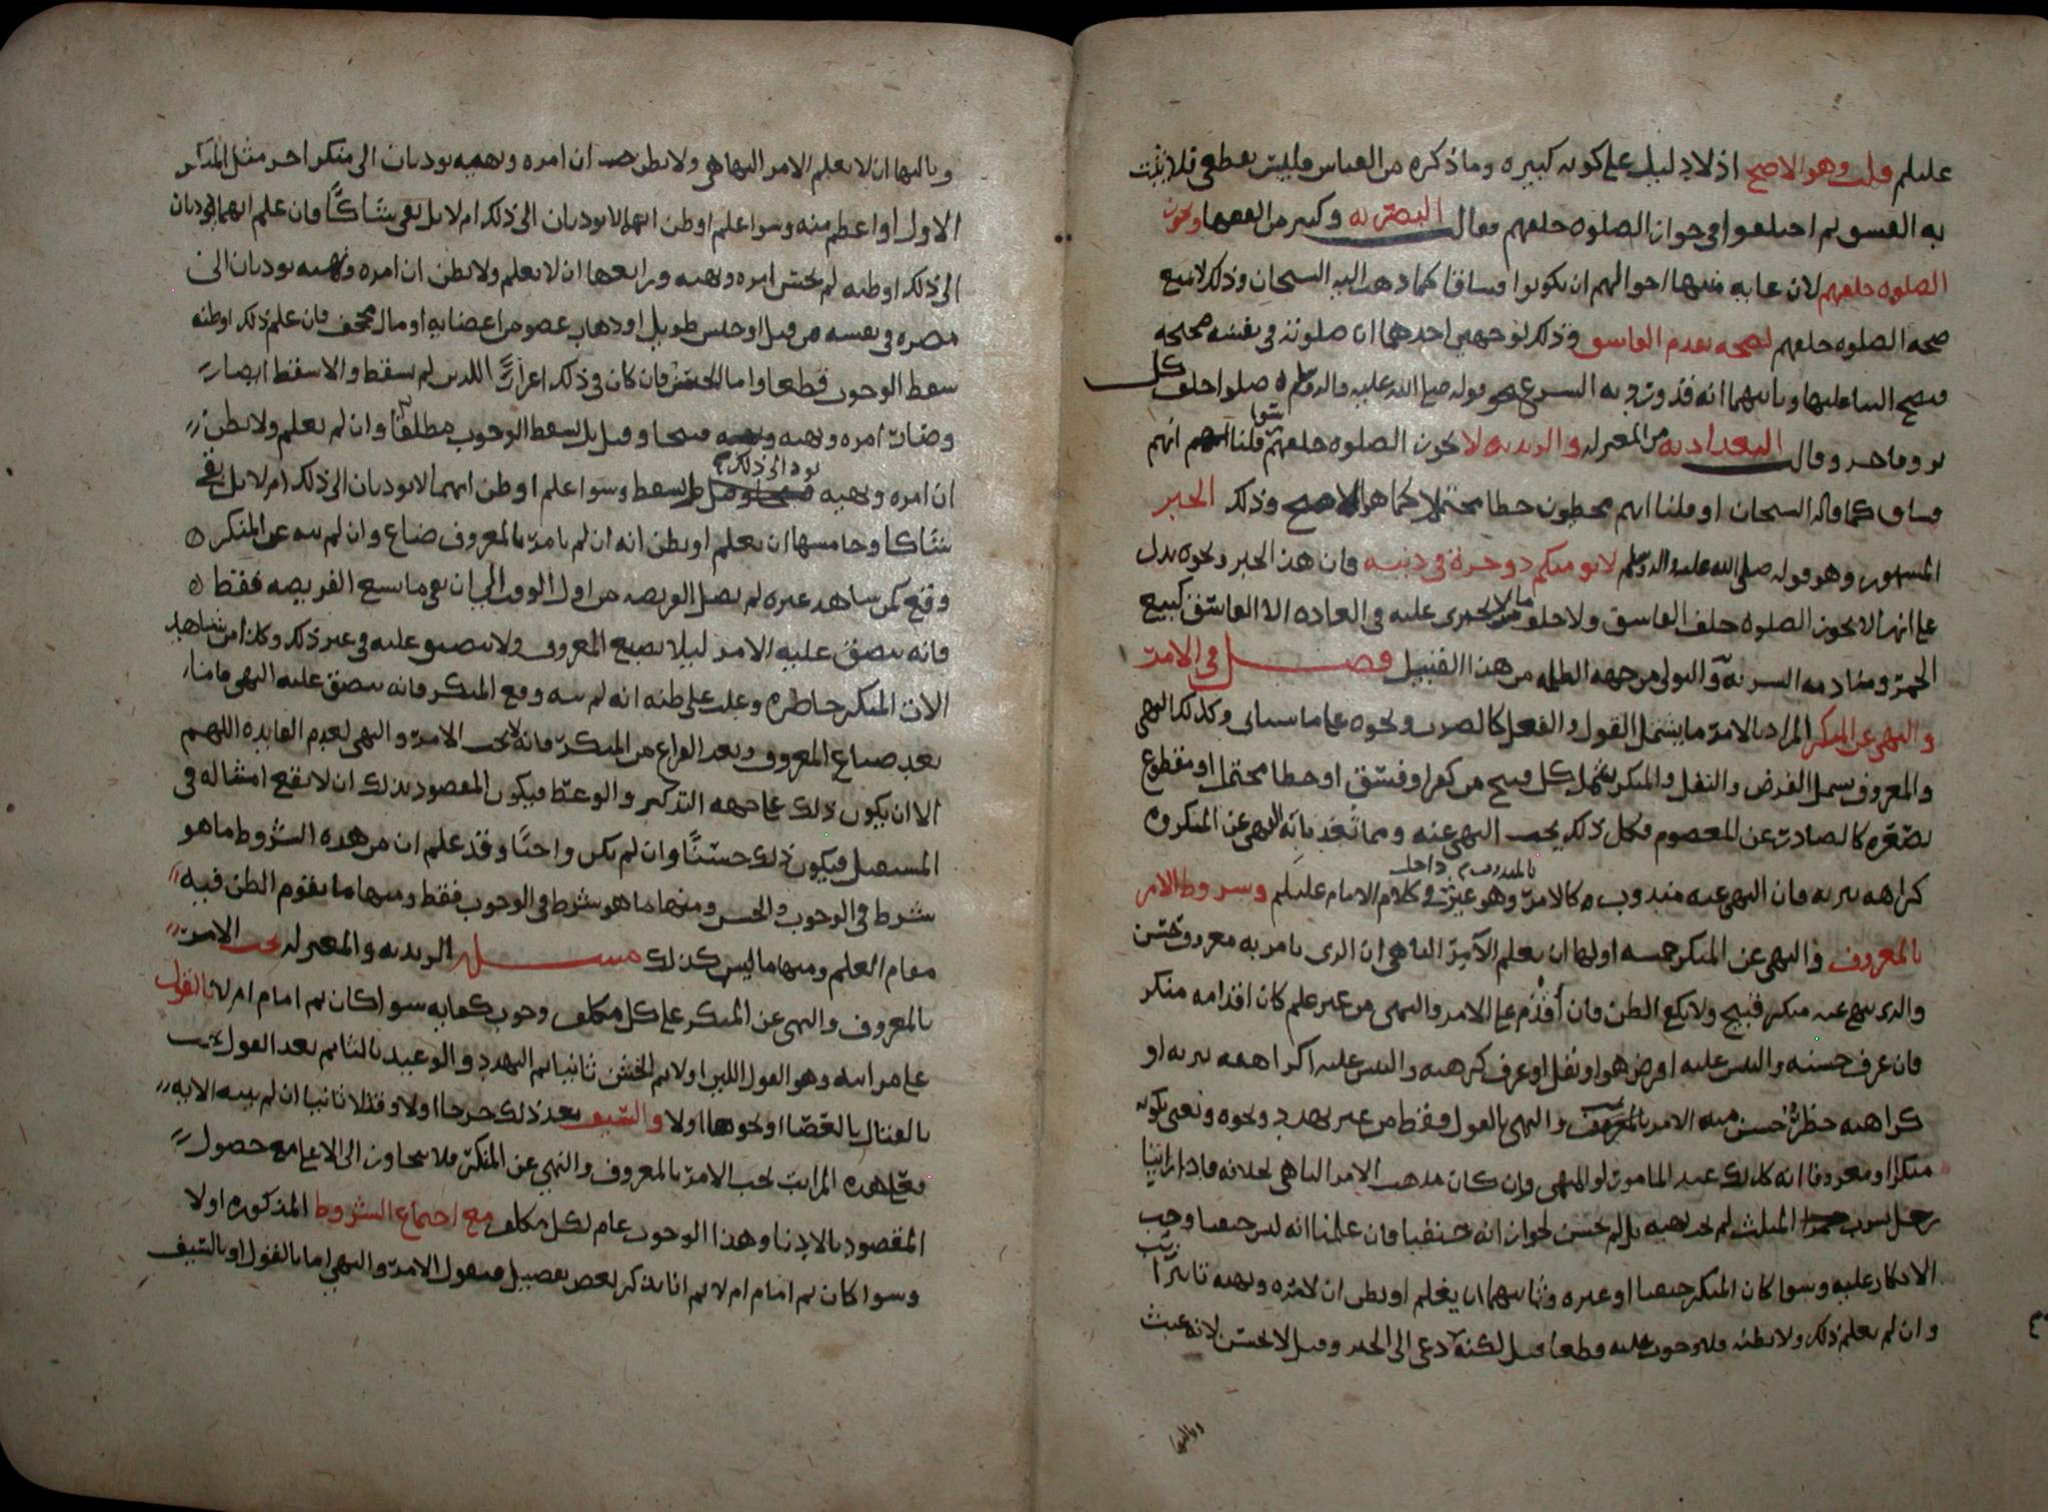 عليلم قلت وهو الاصح اذ لا دليل على كونه كبيره وما ذكره من القياس فليس بقطعي فلا يثبت
به الفسق ثم اختلفوا في جواز الصلوه خلفهم فقال البصريه وكثير من الفقها وتجوز
الصلوه خلفهم لان غايه منتها احوالهم ان يكونوا فساقا كما ذهب اليه الشيخان وذلك لا يمنع
صحه الصلوه خلفهم لصحه تقدم الفاسق وذلك لوجهين احدهما ان صلوته في نفسه صحيحه
فيصح البنا عليها وثانيهما انه قد ورد به الشرع نحو قوله صلى الله عليه واله وسلم صلوا خلف كل
بر وفاجر وقال البغداديه من المعتزله والزيديه لا تجوز الصلوه خلفهم سوا قلنا انهم
فساق كما قاله الشيخان او قلنا انهم مخطون خطا محتملا كما هو الاصح وذلك الخبر
المشهور وهو قوله صلى الله عليه واله وسلم لا يؤمنكم ذو جرءة في دينه فان هذا الخبر ونحوه يدل
على انها لا تجوز الصلوه خلف الفاسق ولا خلف من لا يجترى عليه في العاده الا الفاسق كبيع
الخمر ومنادمه الشربه والتولي من جهه الظلمه من هذا القبيل فصل في الامر
والنهي عن المنكر المراد بالامر ما يشمل القول والفعل كالضرب ونحوه على ما سياتى وكذلك النهي
والمعروف يشمل الفرض والنفل والمنكر يشمل كل قبيح من كفر او فسق او خطا محتمل او مقطوع
بصغره كالصادر عن المعصوم فكل ذلك يجب النهي عنه ومما نعد بانه النهي عن المنكروه
كراهه تنزيه فان النهي عنه مندوب كالامر بالمندوب وهو غير داخل في كلام الامام عليلم وشروط الامر
بالمعروف والنهي عن المنكر خمسه اولها ان يعلم الآمر الناهي ان الذي يامر به معروف حسن
والذي ينهى عنه منكر قبيح ولا يكفي الظن فان أقدم على الامر والنهي من غير علم كان اقدامه منكر
فان عرف حسنه والتبس عليه افرض هو او نفل او عرف كرهه والتبس عليه اكراهه تنزيه او
كراهه حظر حسن منه الامر بالمعروف والنهي بالقول فقط من غير تهدد ونحوه ونعني بكونه
منكرا او معروفا انه كذلك عند المامور او المنهي وان كان مذهب الامر الناهي بخلافه فاذا راينا
رجل يشرب المثلث لم يجز نهيه بل لم يحسن لجواز انه حنفيا فان علمنا انه ليس حنفيا وجب
الانكار عليه وسوا كان المنكر حنفيا او غيره وثانيهما ان يعلم او يظن ان لامره ونهيه تاثيرا
وان لم يعلم ذلك ولا يظنه فلا وجوب عليه قطعا قيل لكنه دعى الى الخير وقيل لا يحسن لانه عبث
وثالثها
وثالثها ان لا يعلم الامر الناهي ولا يظن ان امره ونهيه يوديان الى منكر اخر مثل المنكر
الاول او اعظم منه وسوا علم او ظن انهما لا يوديان الى ذلك ام لا بل بقي شاكًا فان علم انهما يوديان
الى ذلك او ظنه لم يحسن امره ونهيه ورابعها ان لا يعلم ولا يظن ان امره ونهيه يوديان الى
مضره في نفسه من قتل او حبس طويل او ذهاب عضو من اعضايه او مال مجحف فان علم ذلك او ظنه
سقط الوجوب قطعا واما الحسن فان كان في ذلك اعزاز اللدين لم يسقط والا سقط ايضا
وصار امره ونهيه قبيحا وقيل بل يسقط الوجوب مطلقا وان لم يعلم ولا يظن
ان امره ونهيه يود الى ذلك لم يسقط وسوا علم او ظن انهما لا يوديان الى ذلك ام لا بل بقي
شاكا وخامسها ان يعلم او يظن انه ان لم يامر بالمعروف ضاع وان لم ينه عن المنكر
وقع كمن شاهد غيره لم يصل الفريضه من اول الوقت الى ان بقي ما يسع الفريضه فقط
فانه يضيق عليه الامر ليلا يضيع المعروف ولا يضيق عليه في غير ذلك وكذا من شاهد
الات المنكر حاضره وغلب على ظنه انه لم ينه وقع المنكر فانه يضيق عليه النهي فاما
بعد ضياع المعروف وبعد الفراغ من المنكر فانه لا يجب الامر والنهي لعدم الفايده اللهم
الا ان يكون ذلك على جهه التذكير والوعظ فيكون المقصود بذلك ان لا يقع امثاله في
المستقبل فيكون ذلك حسنًا وان لم يكن واجبًا وقد علم ان من هذه الشروط ما هو
شرط في الوجوب والحسن ومنها ما هو شرط في الوجوب فقط ومنها ما يقوم الظن فيه
مقام العلم ومنها ما ليس كذلك مسله الزيديه والمعتزله يجب الامر
بالمعروف والنهي عن المنكر على كل مكلف وجوب كفايه سوا كان ثم امام ام لا بالقول
على مراتبه وهو القول اللين اولا ثم الخشن ثانيا ثم التهدد والوعيد ثالثا ثم بعد القول يجب
بالقتال بالعصا او نحوها اولا والسيف بعد ذلك جرحا اولا وقتلا ثانيا ان لم ينته الا به
فعلى هذه المراتب يجب الامر بالمعروف والنهي عن المنكر فلا يتجاوز الى الاعلى مع حصول
المقصود بالادنا وهذا الوجوب عام لكل مكلف مع اجتماع الشروط المذكوره اولا
وسوا كان ثم امام ام لا ثم انا نذكر بعض تفصيل فنقول الامر والنهي اما بالقول او بالسيف